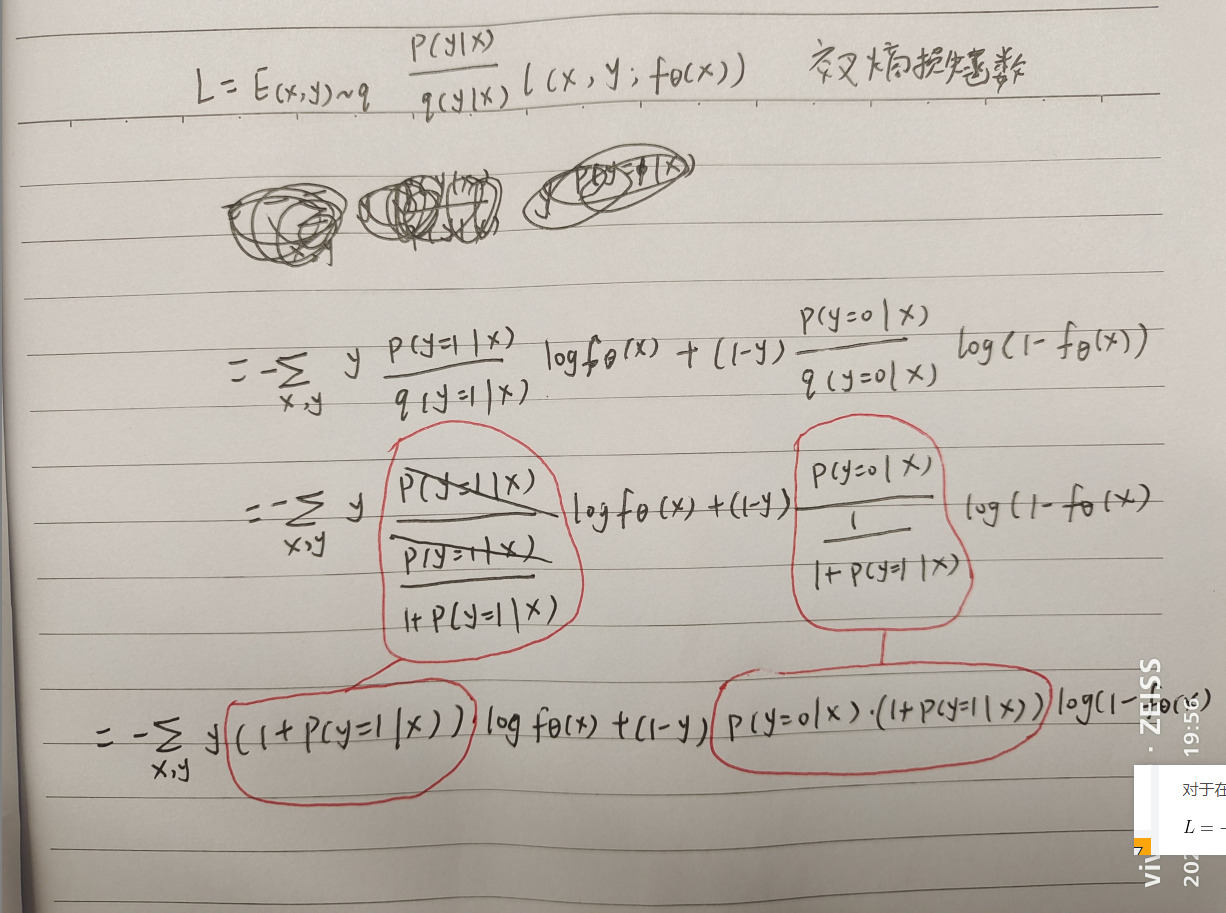 L = E(x,y)~q P(y|x)/q(y|x) l(x, y; fθ(x)) 交叉熵损失函数
= -∑x,y y P(y=1|x)/q(y=1|x) log fθ(x) + (1-y) P(y=0|x)/q(y=0|x) log(1-fθ(x))
= -∑x,y y P(y=1|x)/(P(y=1|x)/1+P(y=1|x)) log fθ(x) + (1-y) P(y=0|x)/(1/1+P(y=1|x)) log(1-fθ(x)
= -∑x,y y (1+P(y=1|x)) log fθ(x) + (1-y) P(y=0|x)·(1+P(y=1|x)) log(1-fθ(x)
· ZEISS
19:56
对于在
L = -
viv
202